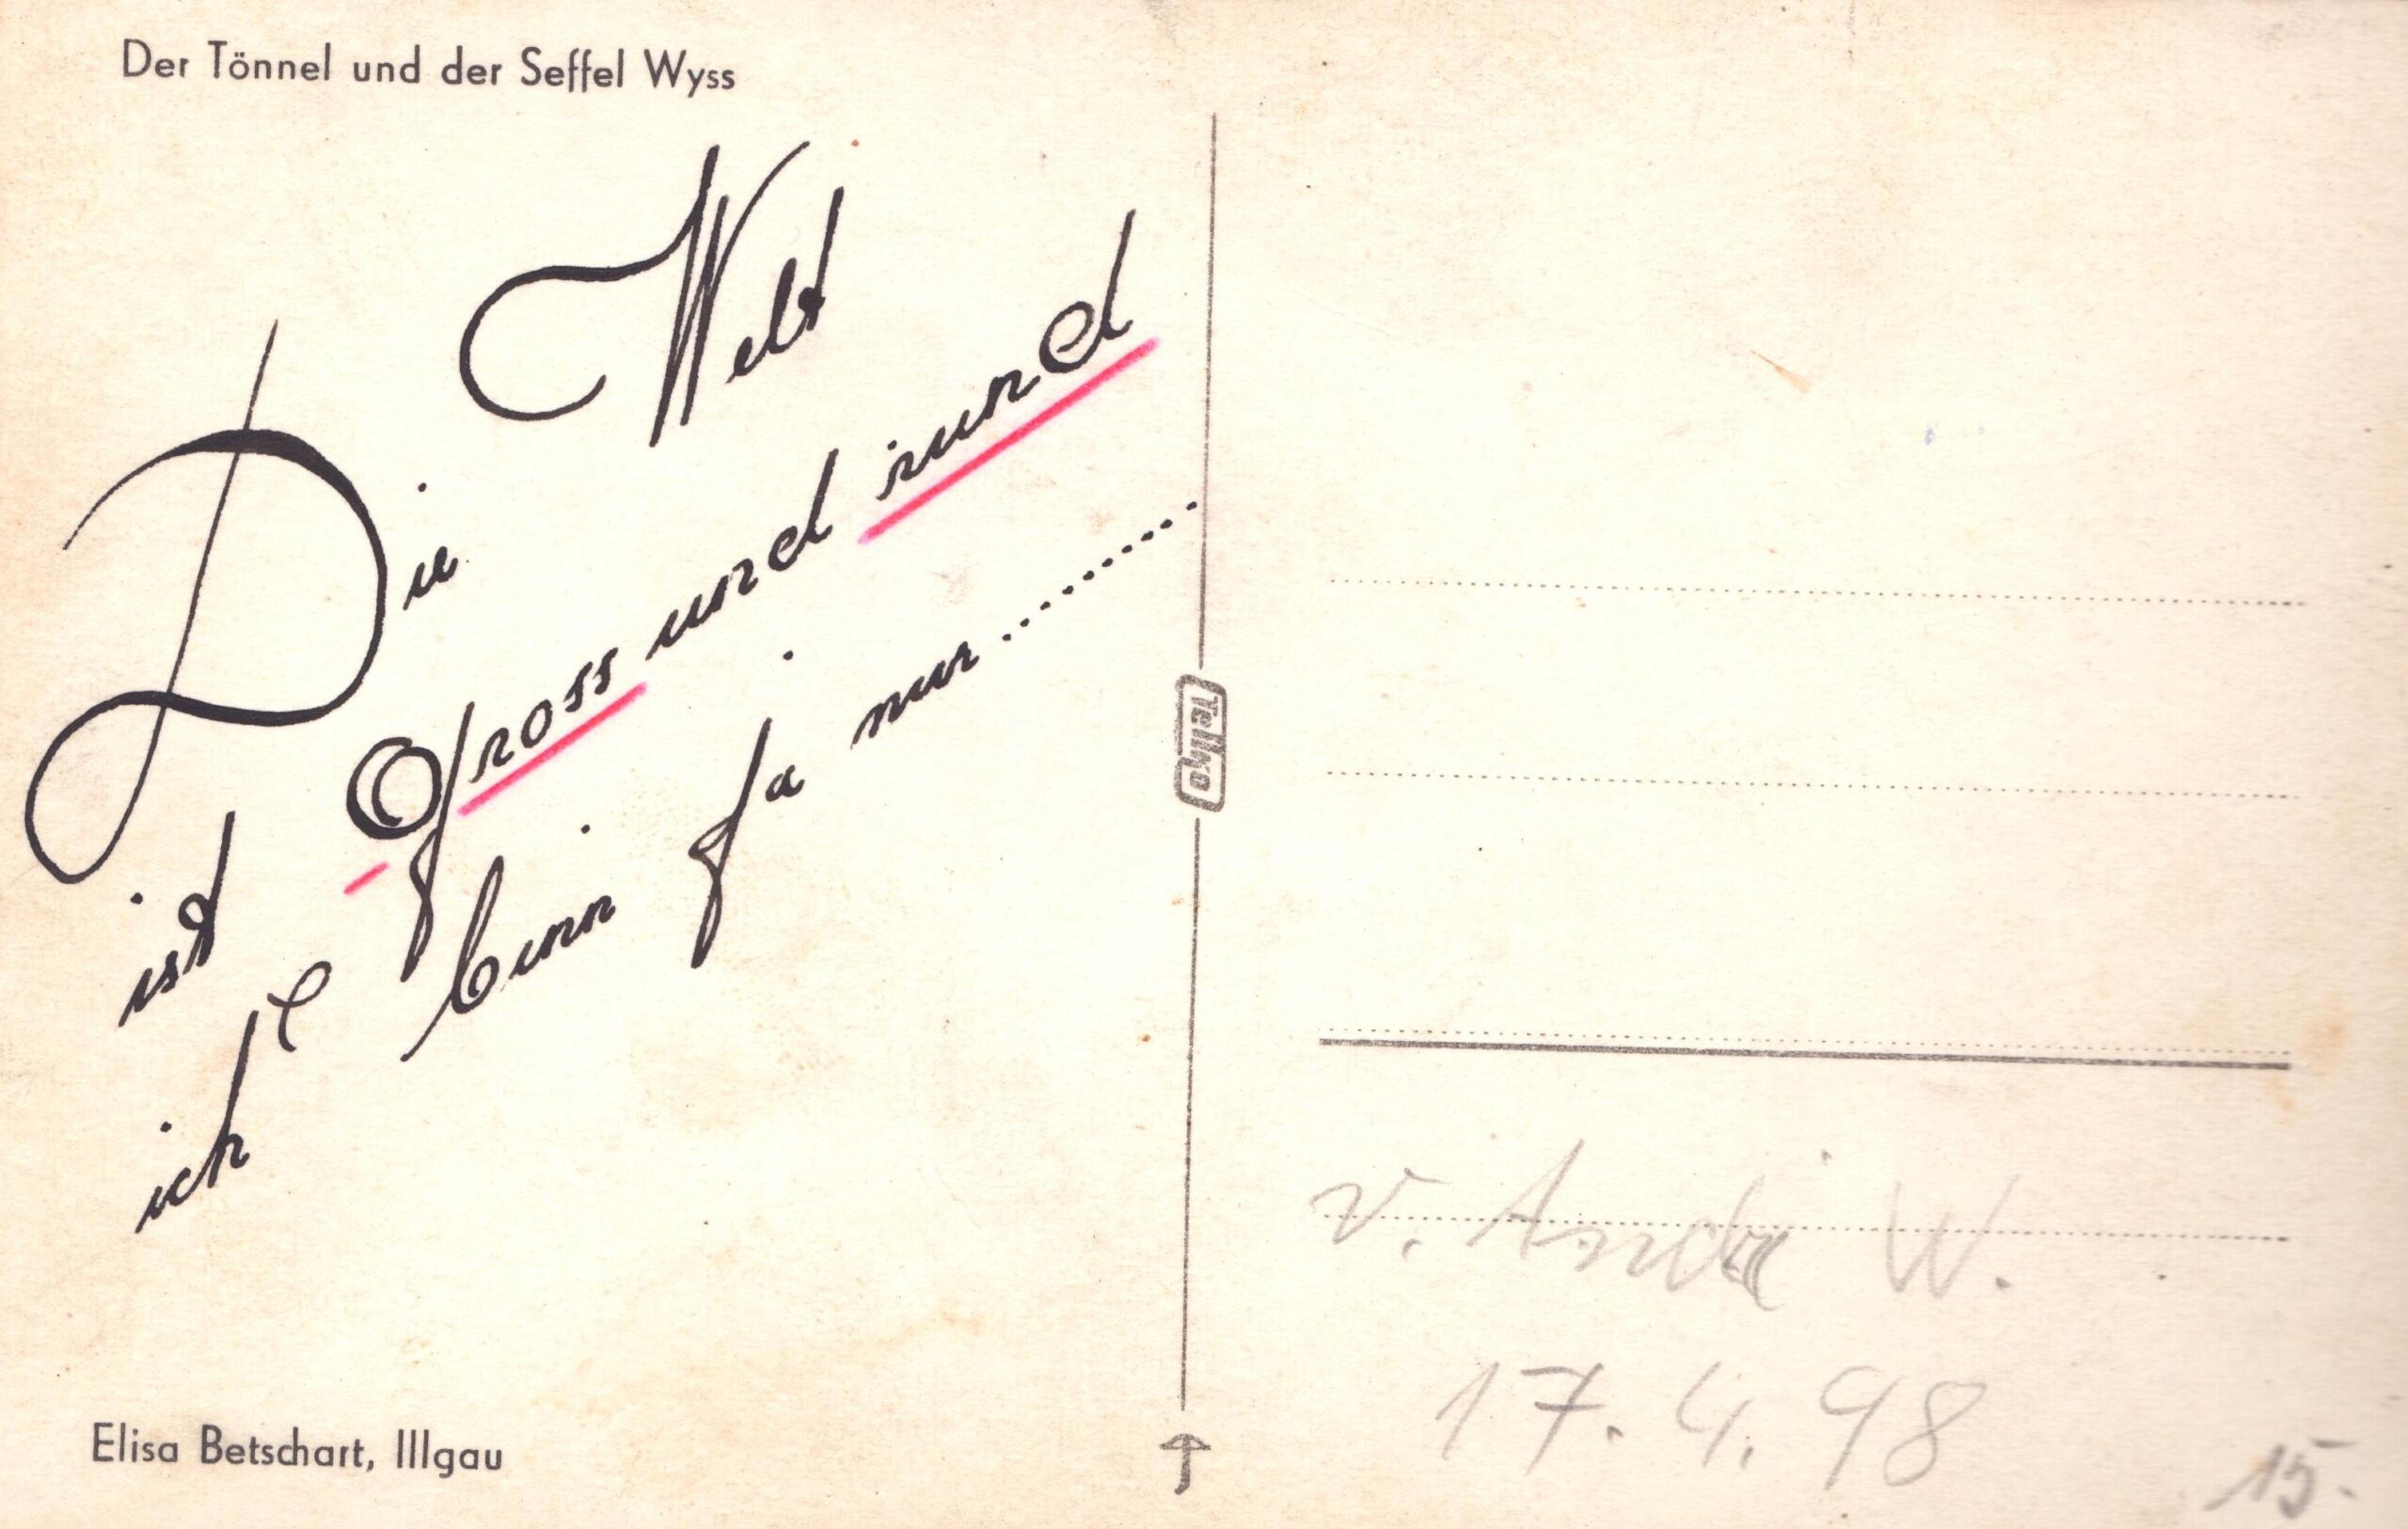 Der Tönnel und der Seffel Wyss
Die Welt
ist Gross und rund
ich binn ja nur ..........
Elisa Betschart, Illgau
Tellko
v. André W.
17.4.98
15.-